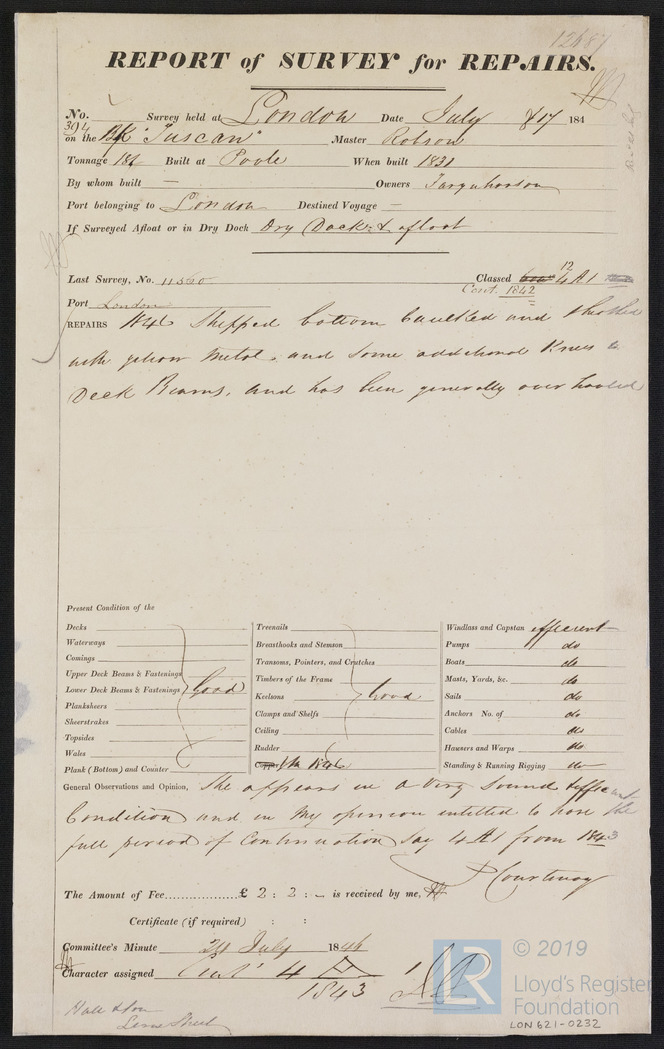 12687
REPORT of SURVEY for REPAIRS.
No. 394 Survey held at London Date July 184
on the Bk "Tuscan" Master Robson
Tonnage 181 Built at Poole When built 1831
By whom built — Owners Farquharson
Port belonging to London Destined Voyage —
If Surveyed Afloat or in Dry Dock Dry Dock & afloat
Last Survey, No. 11550 Classed 12 4 A1
Cont. 1842
Port London
REPAIRS 1846 Stripped bottom Caulked and Sheathed
with yellow Metal, and some additional Knees to
Deck Beams, and has been generally over hauled
Present Condition of the
Decks
Waterways
Comings
Upper Deck Beams & Fastenings
Lower Deck Beams & Fastenings Good
Planksheers
Sheerstrakes
Topsides
Wales
Plank (Bottom) and Counter
Treenails
Breasthooks and Stemson
Transoms, Pointers, and Crutches
Timbers of the Frame
Keelsons Good
Clamps and Shelfs
Ceiling
Rudder
1846
Windlass and Capstan efficient
Pumps do
Boats do
Masts, Yards, &c. do
Sails do
Anchors No. of do
Cables do
Hawsers and Warps do
Standing & Running Rigging do
General Observations and Opinion, She appears in a very sound & efficient
Condition and in my opinion entitled to have the
full period of Continuation say 4 A1 from 1843
P Courtenay
The Amount of Fee £ 2 : 2 : – is received by me,
Certificate (if required) : :
Committee's Minute 24 July 1846
Character assigned Cont 4 A 1
1843
Hall & Son
Leman Street
LR
© 2019
Lloyd's Register
Foundation
LON 621-0232